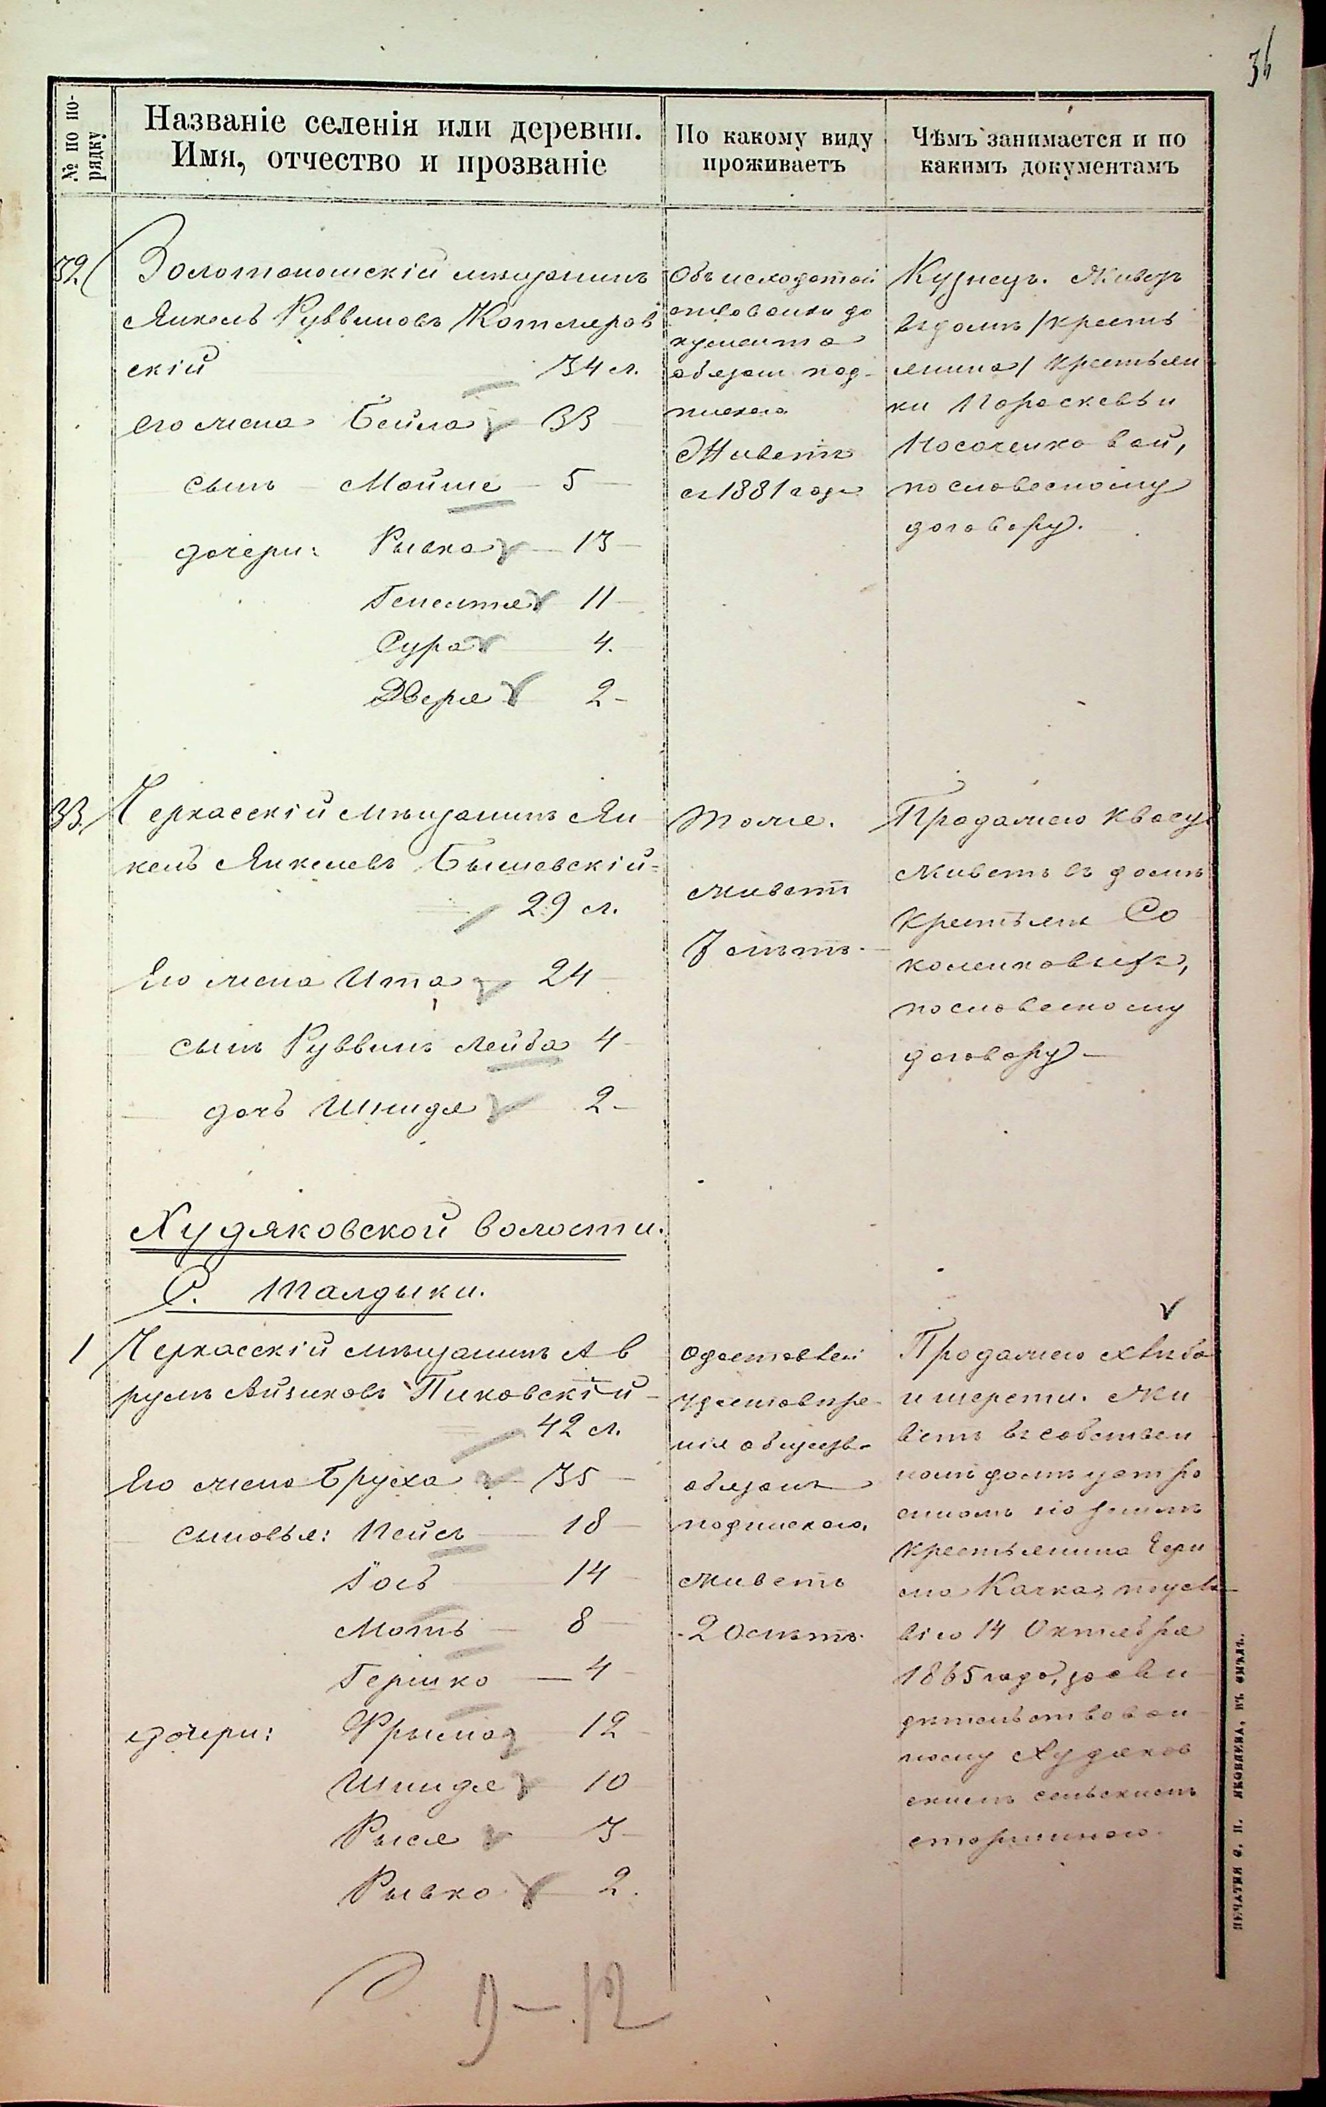 36
№ по по-
рядку
Названіе селенія или деревни.
Имя, отчество и прозваніе
По какому виду
проживаетъ
Чѣмъ занимается и по
какимъ документамъ
32.
Золотоношскій мѣщанинъ
Янкель Руввиновъ Котляров
скій 34 л.
его жена Бейла 33
сынъ Мойше 5
дочери: Рывка 13
Генентя 11
Сура 4.
Дверя 2
Объ исходатай
ствованіи до
кумента
обязан под-
пискою
Живетъ
съ 1881 года
Кузнецъ. Живетъ
въ домѣ /кресть
янина/ крестьян
ки Параскевьи
Носаченковой,
по словесному
договору.
33.
Черкасскій мѣщанинъ Ян
кель Янкелевъ Бышевскій
29 л.
Его жена Ита 24
сынъ Руввинъ Лейба 4
дочь Шиндля 2
Тоже.
живетъ
7 лѣтъ.
Продажею квасу
живетъ въ домѣ
крестьян Со
коленковыхъ,
по словесному
договору
Худяковской волости.
С. Талдыки.
1
Черкасскій мѣщанинъ Ав
румъ Айзиковъ Пиковскій
42 л.
Его жена Бруха 35
сыновья: Пейсъ 18
Іось 14
Моть 8
Гершко 4
дочери: Фрыма 12
Шиндля 10
Рыся 3
Рывка 2.
О доставленіи
удостовѣре
нія общества
обязанъ
подпискою.
живетъ
20 лѣтъ.
Продажею хлѣба
и шерсти. Жи
ветъ въ собствен
номъ домѣ устро
енномъ на землѣ
крестьянина
Качка,
14 Октября
1865 года, засви
дѣтельствован
ному Худяков
скимъ сельскимъ
старшиною.
9 — 12
ПЕЧАТНЯ С. П. ЯКОВЛЕВА, ВЪ СМѢЛѢ.